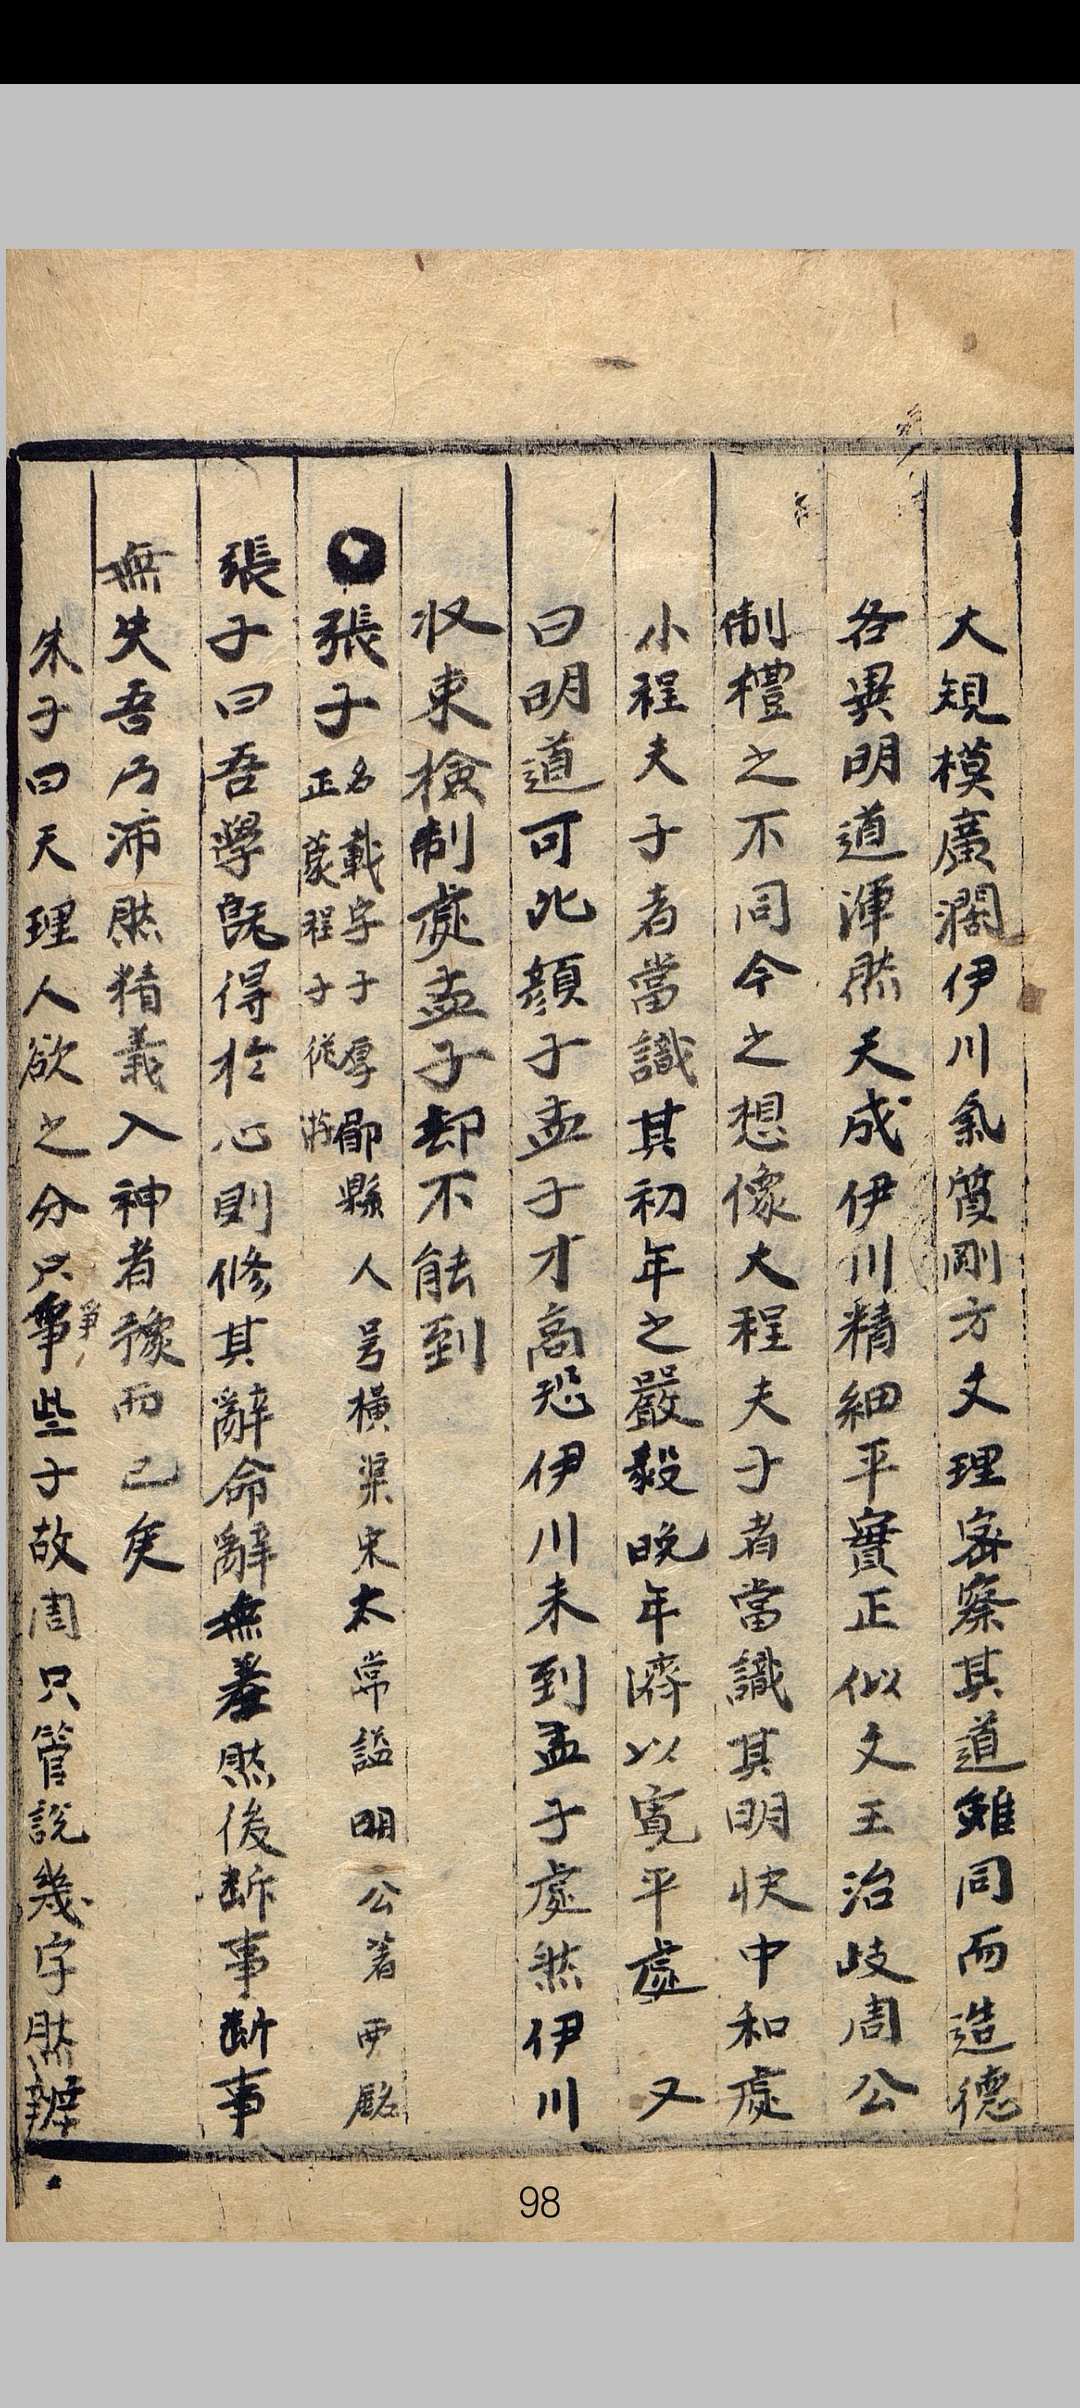 大規模廣濶伊川氣質剛方文理密察其道雖同而造德
各異明道渾然天成伊川精細平實正似文王治岐周公
制禮之不同今之想像大程夫子者當識其明快中和處
小程夫子者當識其初年之嚴毅晚年濟以寬平處 又
曰明道可比顏子孟子才高恐伊川未到孟子處然伊川
收束檢制處孟子却不能到
張子
名載字子厚郿縣人号橫渠宋太常謚明公著西銘
正蒙程子從游
張子曰吾學旣得於心則修其辭命辭無差然後断事断事
無失吾乃沛然精義入神者豫而已矣
朱子曰天理人欲之分只事些子故周只管說幾字然辨
爭
98